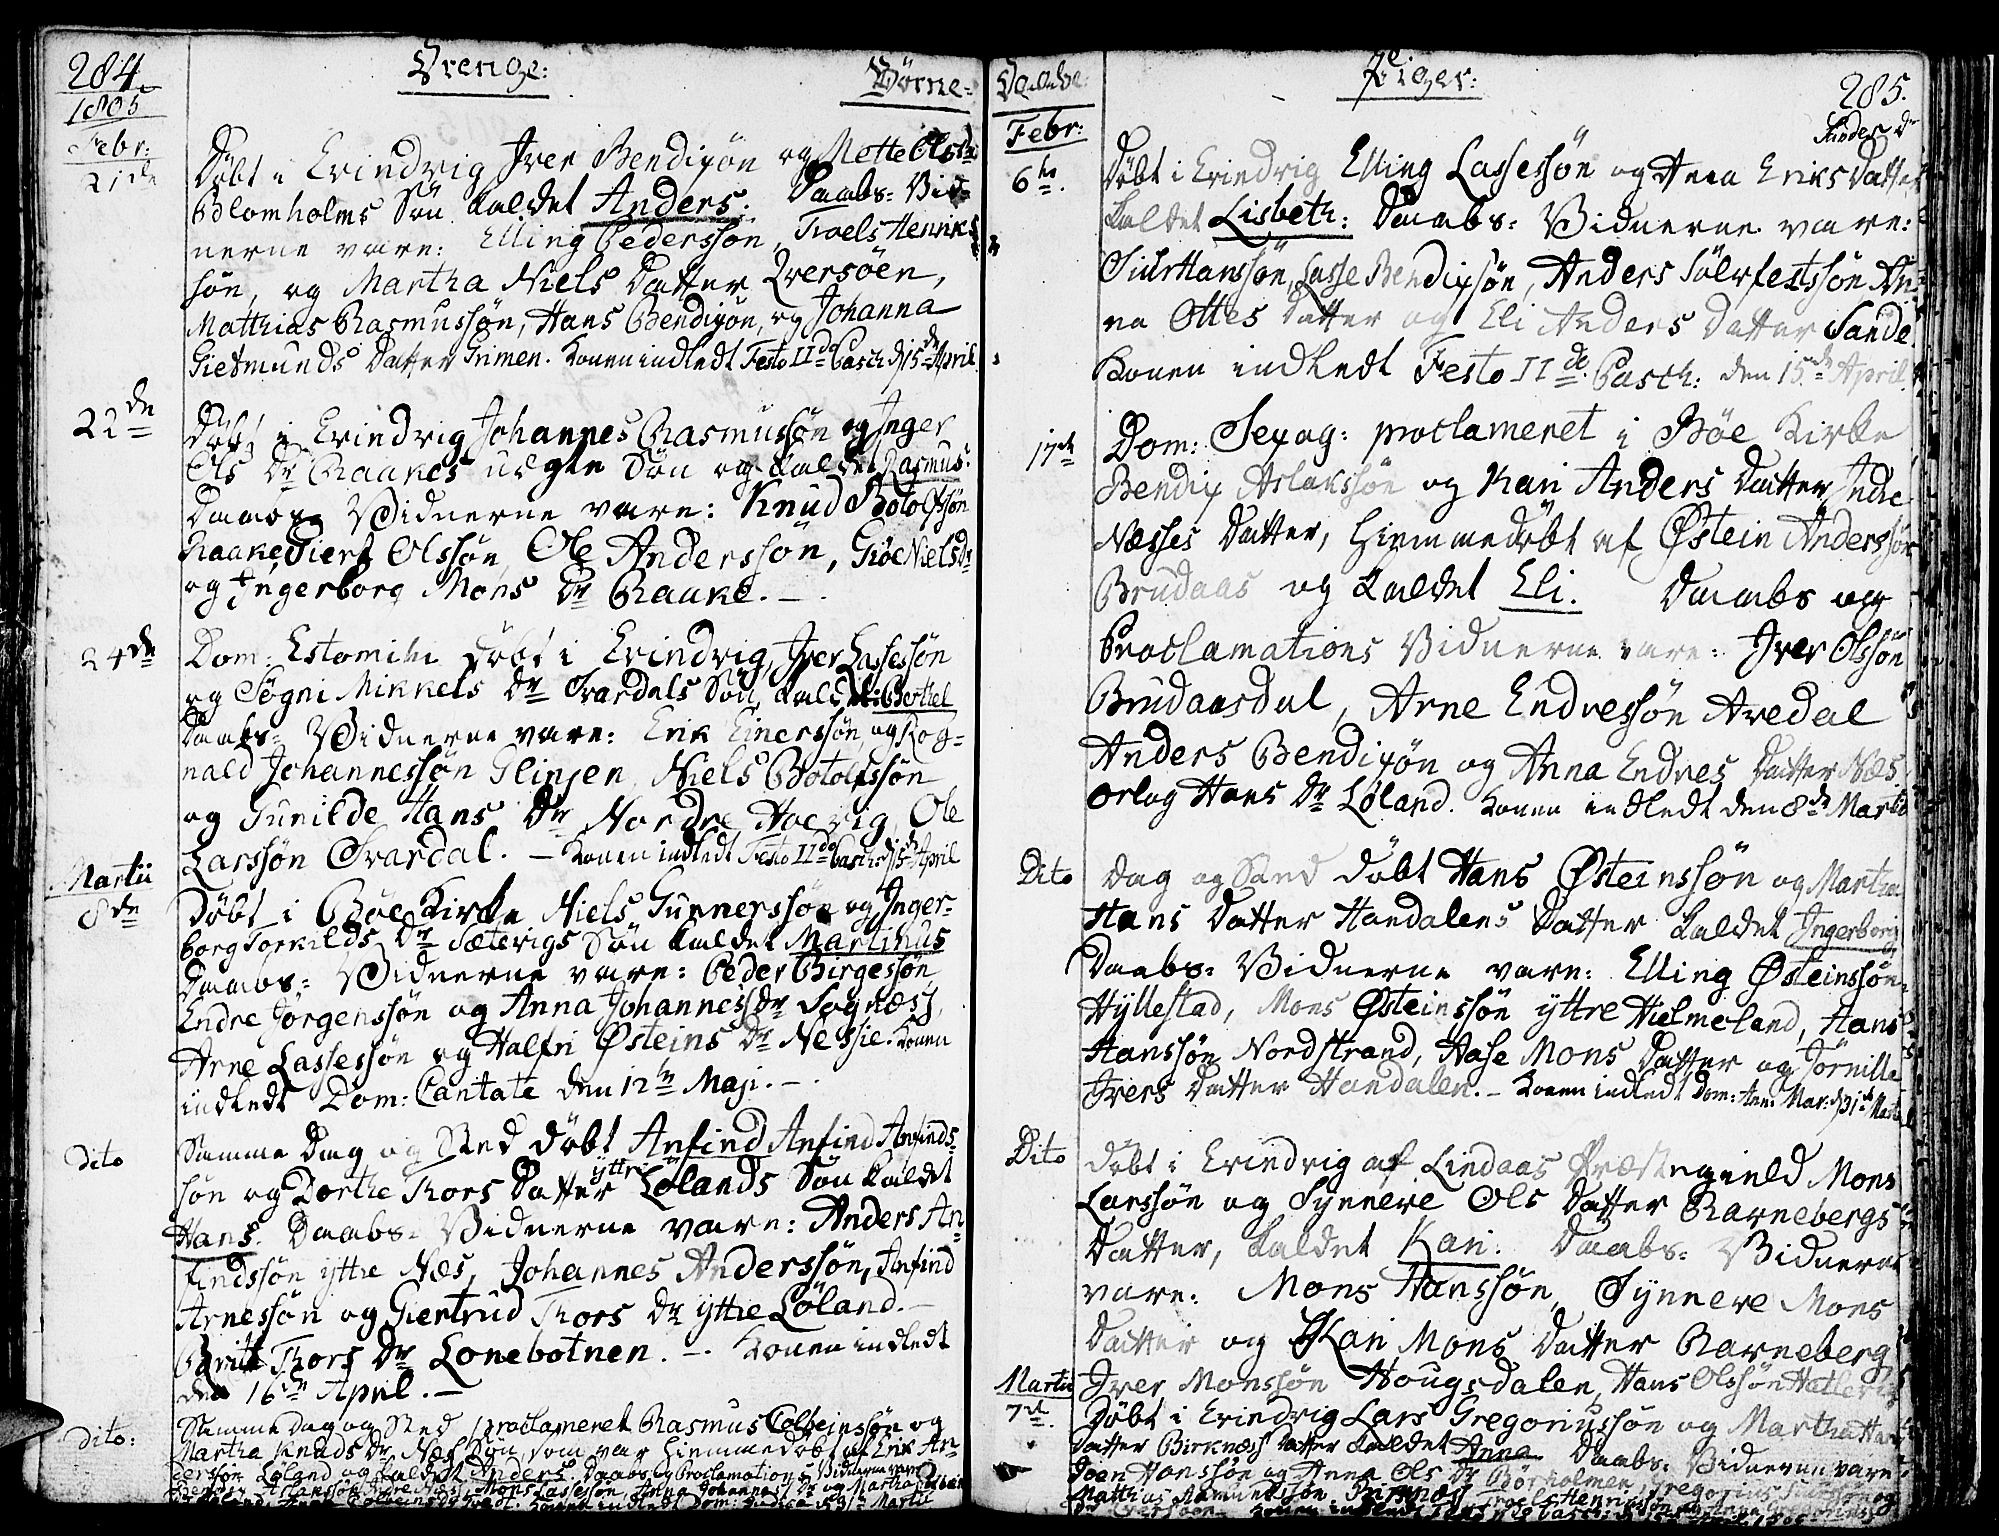 284. Drenge: Børne=
1805
Febr:
21de Døbt i Evindvig Iver Bendixøn og Mette Ols Dr
Blomholms Søn kaldet Anders. Daabs= Vid=
nerne vare: Elling Pederssøn, Troels Henriks
søn, og Martha Niels Datter Qversøen,
Matthias Rasmussøn, Hans Bendixøn, og Johanna
Giermunds Datter Grimen. Konen indledt Festo IIdo Pasch: d 15de April
22de Døbt i Evindvig Johannes Rasmussøn og Inger
Ols Dr Raakes uægte Søn og kaldet Rasmus:
Daabs Vidnerne vare: Knud Botolfssøn
Raake, Siert Olssøn, Ole Anderssøn, Giøe Niels Dr
og Ingerborg Mons Dr Raake. —
24de Dom: Estomihi Døbt i Evindvig, Iver Lassessøn
og Søgni Mikkels Dr Svardals Søn, kaldet: Bertel
Daabs= Vidnerne vare: Erik Einerssøn, og Rog=
nald Johannessøn Glinjen, Niels Botolfssøn
og Gunilde Hans Dr Nordre Hoevig, Ole
Larssøn Svardal. — Konen indledt Festo IIdo Pasch: d 15de April
Martii
8de Døbt i Bøe Kirke Niels Gunnerssøn og Inger=
borg Torkilds Dr Sætevigs Søn kaldet Martinus
Daabs= Vidnerne vare: Peder Birgessøn
Endre Jørgenssøn og Anna Johannes Dr Sognæss,
Arne Lassessøn og Halfri Østeins Dr Nessie. Konen
indledt Dom: Cantate den 12te Maji. —
Dito Samme Dag og Sted døbt Anfind Anfind Anfinds=
søn og Dorthe Thors Datter yttre Lølands Søn kaldet
Hans. Daabs= Vidnerne vare: Anders An=
findssøn yttre Næs, Johannes Anderssøn, Anfind
Arnessøn og Giertrud Thors Dr yttre Løland. —
Britt Thors Dr Lonebotnen. — Konen indledt
den 16de April. —
Dito: Samme dag og Sted, proclameret Rasmus Colbeinssøn og
Martha Knuds Dr Næs Søn, som var Hiemmedøbt af Erik An=
derssøn Løland og kaldet Anders. Daabs og Proclamations Vidnerne vare
Mons Lassessøn, Anna Johannes Dr og Martha
Daabe: Piger: 285.
Febr: Sandes Dr
6te. Døbt i Evindvig Elling Lassessøn og Anna Eriks Datter
kaldet Lisbeth: Daabs= Vidnerne vare:
Siur Hanssøn, Lasse Bendixsøn, Anders Sølvfestssøn An=
na Ottes Datter og Eli Anders Datter Sande
Konen indledt Festo IIdo Pasch: den 15de April
17de Dom: Sexag: proclameret i Bøe Kirke
Bendix Aslakssøn og Kari Anders Datter Indre
Næsses Datter, hiemmedøbt af Østein Anderssøn
Brudaas og kaldet Eli. Daabs og
Proclamations Vidnerne vare: Iver Olssøn
Brudaasdal, Arne Endressøn Avedal
Anders Bendixøn og Anna Endres Datter Næs
Orlog Hans Dr Løland. Konen indledt den 8de Martii
Dito Dag og Sted døbt Hans Østeinssøn og Martha
Hans Datter Handalens Datter kaldet Ingerborg
Daabs= Vidnerne vare: Elling Østeinssøn
Hyllestad, Mons Østeinssøn yttre Hielmeland, Hans
Hanssøn Nordstrand, Aase Mons Datter og Jørnille
Ivers Datter Handalen. — Konen indledt Dom: Ann: Mar: d 31te Martii
Dito døbt i Evindvig af Lindaas Præstegield Mons
Larssøn og Synneve Ols Datter Ravnebergs
Datter, kaldet Kari. Daabs= Vidnerne
vare: Mons Hanssøn, Synneve Mons
Datter og Kari Mons Datter Ravneberg
Martii Iver Monssøn Hougsdalen, Hans Olssøn Hatlevig
7de. Døbt i Evindvig Lars Gregoriussøn og Martha Hans
Datter Birknæss Datter kaldet Anna. Daabs= Vidnerne vare
Joen Hanssøn og Anna Ols Dr Børholmen, Gregorius
Mattias Birknæss, Troels Henrikssøn og Anna